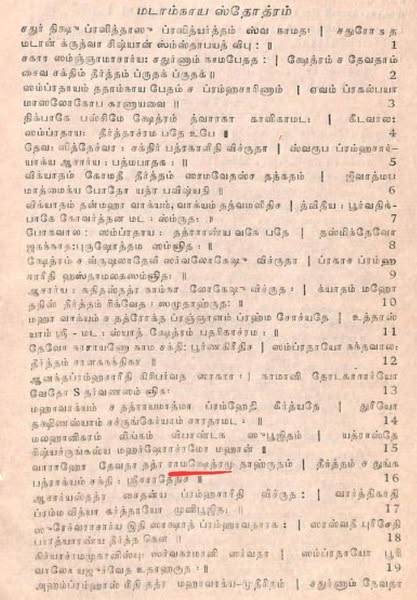 மடாம்நாய ஸ்தோத்ரம்
சதுர் திக்ஷு ப்ரஸித்தாஸு ப்ரஸித்யர்த்தம் ஸ்வ நாமத: | சதுரோ s த
மடான் க்ருத்வா சிஷ்யான் ஸம்ஸ்தாபயத் விபு: ॥ 1
சகார ஸம்ஞ்ஞாமாசார்ய: சதுர்ணாம் நாமபேதத: | க்ஷேத்ரம் ச தேவதாம்
சைவ சக்திம் தீர்த்தம் ப்ருதக் ப்ருதக் ॥ 2
ஸம்ப்ரதாயம் ததாம்நாய பேதம் ச ப்ரம்ஹசாரிணாம் | ஏவம் ப்ரகல்பயா
மாஸலோகோப காரணாயவை ॥ 3
திக்பாகே பஸ்சிமே க்ஷேத்ரம் த்வாரகா காளிகாமட: | கீடவால:
ஸம்ப்ரதாய: தீர்த்தாச்ரம பதே உபே ॥ 4
தேவ: ஸித்தேச்வர: சக்திர் பத்ரகாளீதி விச்ருதா | ஸ்வரூப ப்ரம்ஹசார்
யாக்ய ஆசார்ய: பத்மபாதக: ॥ 5
விக்யாதம் கோமதீ தீர்த்தம் ஸாமவேதஸ்ச தத்கதம் | ஜீவாத்மப
மாத்மைக்ய போதோ யத்ர பவிஷ்யதி ॥ 6
விக்யாதம் தன்மஹா வாக்யம் வாக்யம் தத்வமஸீதிச | த்விதீய: பூர்வதிக்
பாகே கோவர்த்தன மட: ஸ்ம்ருத: ॥ 7
போகவால: ஸம்ப்ரதாய: தத்ராரண்ய வகே பதே | தஸ்மிந்தேவோ
ஜகந்நாத:புருஷோத்தம ஸம்ஞித: ॥ 8
க்ஷேத்ரம் ச வ்ருஷலாதேவீ ஸர்வலோகேஷு விச்ருதா | ப்ரகாச ப்ரம்ஹ
சாரீதி ஹஸ்தாமலகஸம்ஞித: ॥ 9
ஆசார்ய: கதிதஸ்தத்ர நாம்நா லோகேஷு விச்ருத: | க்யாதம் மஹோ
ததிஸ் தீர்த்தம் ரிக்வேத: ஸமுதாஹ்ருத: ॥ 10
மஹா வாக்யம் ச தத்ரோக்த ப்ரஞ்ஞானம் ப்ரஹ்ம சோச்யதே | உத்தரஸ்
யாம் ஸ்ரீ - மட: ஸ்யாத் க்ஷேத்ரம் பதரிகாச்ரம: ॥ 11
தேவோ நாராயணோ நாம சக்தி: பூர்ணகிரீதிச | ஸம்ப்ரதாயோ நந்தவால:
தீர்த்தம் சாளகநந்திகா ॥ 12
ஆனந்தப்ரம்ஹசாரீதி கிரிபர்வத ஸாகரா: | நாமாநி தோடகாசார்யோ
வேதோ S தர்வணஸம் ஞிக: 13
மஹாவாக்யம் ச தத்ராயமாத்மா ப்ரம்ஹேதி கீர்த்யதே | துரீயோ
தக்ஷிணஸ்யாம் சச்ருங்கேர்யாம் சாரதாமட: ॥ 14
மலஹாநிகரம் லிங்கம் விபாண்டக ஸுபூஜிதம் | யத்ராஸ்தே
ரிஷ்யச்ருங்கஸ்ய மஹர்ஷேராச்ரமோ மஹான் ॥ 15
வாராஹோ தேவதா தத்ர ராமக்ஷேத்ரமு தாஹ்ருதம் | தீர்த்தம் ச துங்க
பத்ராக்யம் சக்தி: ஸ்ரீசாரதேதிச ॥ 16
ஆசார்யஸ்தத்ர சைதன்ய ப்ரம்ஹசாரீதி விச்ருத: | வார்த்திகாதி
ப்ரம்ம வித்யா கர்த்தாயோ முனிபூஜித: ॥ 17
ஸுரேச்வராசார்ய இதி ஸாக்ஷாத் ப்ரம்ஹாவதாரக: | ஸரஸ்வதீ புரீசேதி
பாரத்யாரண்ய தீர்த்த கௌ ॥ 18
கிர்யாச்ரமமுகாநிஸ்யு: ஸர்வநாமாநி ஸர்வதா | ஸம்ப்ரதாயோ பூரி
வாலோ யஜுர்வேத உதாஹ்ருத: ॥ 19
அஹம்ப்ரம்ஹாஸ் மீதி தத்ர மஹாவாக்ய-முதீரிதம் | சதுர்ணாம் தேவதா